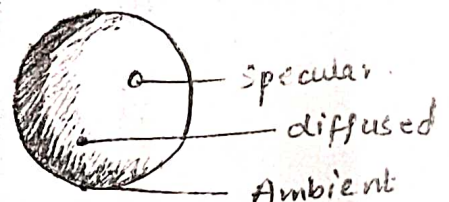 Specular
diffused
Ambient